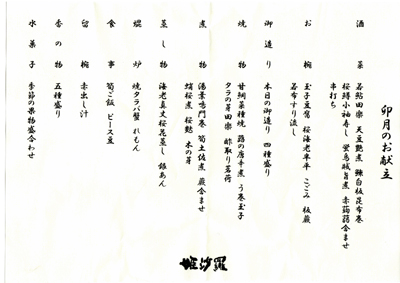 卯月のお献立
酒菜 若鮎田楽 天豆艶煮 鰊白板昆布巻
桜鱒小袖寿し 蛍烏賊旨煮 赤蒟蒻含ませ
串打ち
お椀 玉子豆腐 桜海老真平 こごみ 板蕨
若布すり流し
御造り 本日の御造り 四種盛り
焼物 甘鯛菜種焼 蕗の唐辛煮 う巻玉子
タラの芽田楽 酢取り茗荷
煮物 湯葉鳴門巻 筍土佐煮 蕨含ませ
蛸桜煮 桜麩 木の芽
蒸し物 海老真丈桜花蒸し 銀あん
焜炉 焼タラバ蟹 れもん
食事 筍ご飯 ピース豆
留椀 赤出し汁
香の物 五種盛り
水菓子 季節の果物盛合わせ
姫沙羅